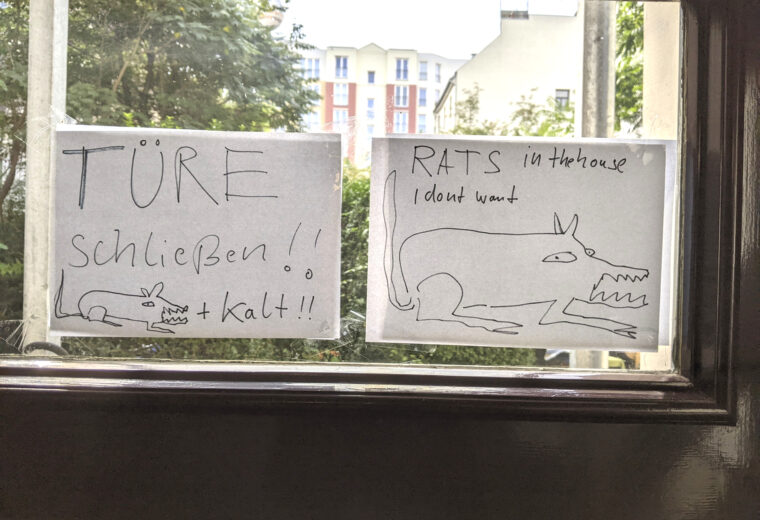 TÜRE
schließen!!
+ kalt!!
RATS in the house
I dont want